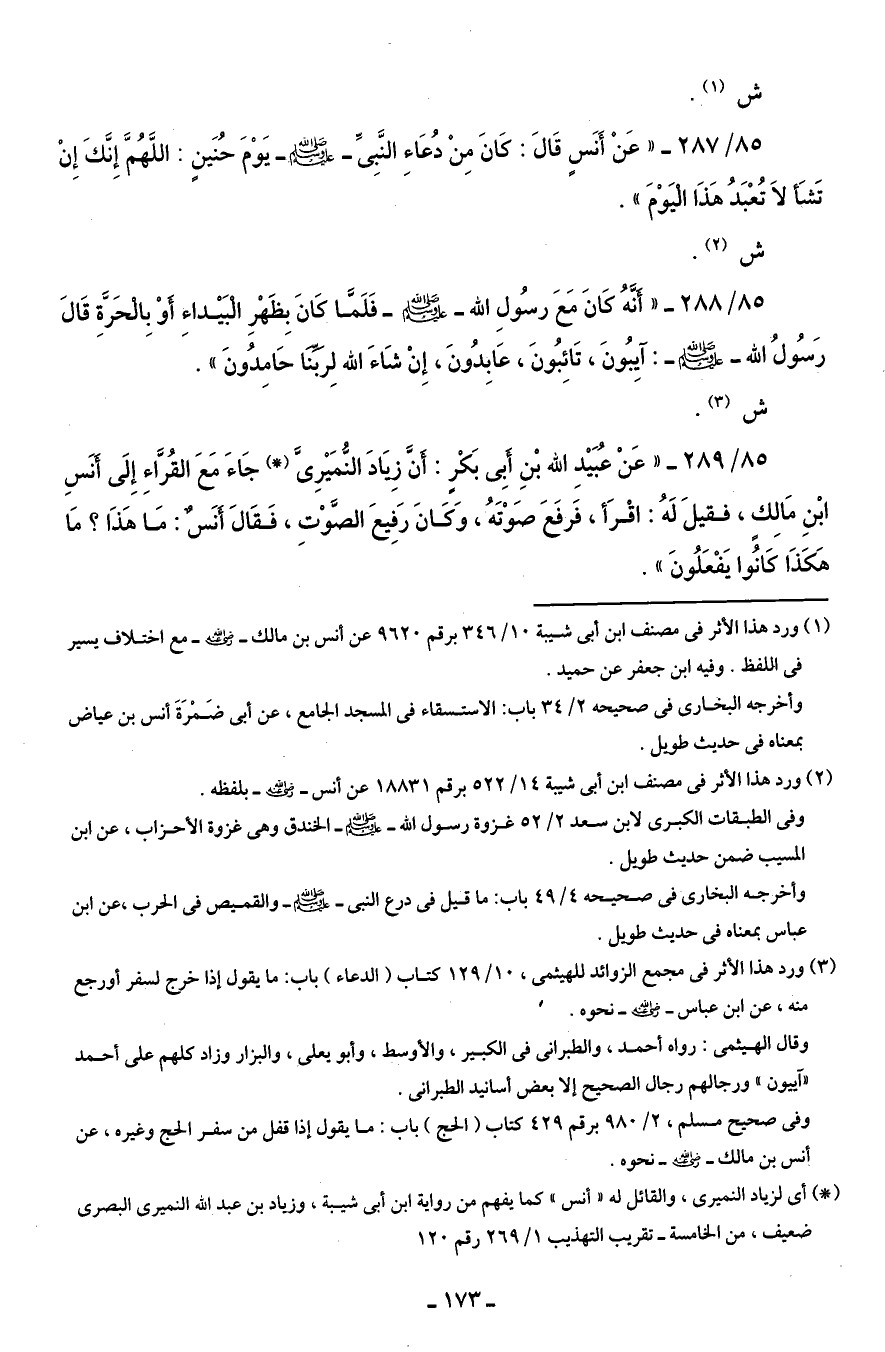 ش (١) .
٢٨٧/٨٥ ـ « عَنْ أَنَسٍ قَالَ : كَانَ مِنْ دُعَاءِ النَّبِىِّ ـ ﷺ ـ يَوْمَ حُنَينٍ : اللَّهُمَّ إِنَّكَ إِنْ
تَشَأ لاَ تُعْبَدُ هَذَا الْيَوْمَ » .
ش (٢) .
٢٨٨/٨٥ ـ « أَنَّهُ كَانَ مَعَ رسُولِ الله ـ ﷺ ـ فَلَمَّا كَانَ بِظَهْرِ الْبَيْداءِ أَوْ بِالْحَرَّةِ قَالَ
رَسُولُ الله ـ ﷺ ـ : آيِبُونَ ، تَائِبُونَ ، عَابِدُونَ ، إِنْ شَاءَ الله لِرَبِّنَا حَامِدُونَ » .
ش (٣) .
٢٨٩/٨٥ ـ « عَنْ عُبَيْدِ الله بْنِ أَبِى بَكْرٍ : أَنَّ زِيَادَ النُّمَيْرِىَّ (*) جَاءَ مَعَ القُرَّاءِ إِلَى أَنَسِ
ابْنِ مَالِكٍ ، فَقِيلَ لَهُ : اقْرَأ ، فَرفَعَ صَوْتَهُ ، وَكَانَ رَفِيعَ الصَّوْتِ ، فَقَالَ أَنَسٌ : مَا هَذَا ؟ مَا
هَكَذَا كَانُوا يَفْعَلُونَ » .
(١) ورد هذا الأثر فى مصنف ابن أبى شيبة ١٠/ ٣٤٦ برقم ٩٦٢٠ عن أنس بن مالك ـ رضي الله عنه ـ مع اختلاف يسير
فى اللفظ . وفيه ابن جعفر عن حميد .
وأخرجه البخارى فى صحيحه ٢/ ٣٤ باب: الاستسقاء فى المسجد الجامع ، عن أبى ضَمْرَةَ أنس بن عياض
بمعناه فى حديث طويل .
(٢) ورد هذا الأثر فى مصنف ابن أبى شيبة ١٤/ ٥٢٢ برقم ١٨٨٣١ عن أنس ـ رضي الله عنه ـ بلفظه .
وفى الطبقات الكبرى لابن سعد ٢/ ٥٢ غزوة رسول الله ـ ﷺ ـ الخندق وهى غزوة الأحزاب ، عن ابن
المسيب ضمن حديث طويل .
وأخرجه البخارى فى صحيحه ٤/ ٤٩ باب: ما قيل فى درع النبى ـ ﷺ ـ والقميص فى الحرب ،عن ابن
عباس بمعناه فى حديث طويل .
(٣) ورد هذا الأثر فى مجمع الزوائد للهيثمى ، ١٠/ ١٢٩ كتاب ( الدعاء ) باب: ما يقول إذا خرج لسفر أورجع
منه ، عن ابن عباس ـ رضي الله عنه ـ نحوه .
وقال الهيثمى : رواه أحمد ، والطبرانى فى الكبير ، والأوسط ، وأبو يعلى ، والبزار وزاد كلهم على أحمد
«آيبون » ورجالهم رجال الصحيح إلا بعض أسانيد الطبرانى .
وفى صحيح مسلم ، ٢/ ٩٨٠ برقم ٤٢٩ كتاب ( الحج ) باب : ما يقول إذا قفل من سفر الحج وغيره ، عن
أنس بن مالك ـ رضي الله عنه ـ نحوه .
(*) أى لزياد النميرى ، والقائل له « أنس » كما يفهم من رواية ابن أبى شيبة ، وزياد بن عبد الله النميرى البصرى
ضعيف ، من الخامسة ـ تقريب التهذيب ١/ ٢٦٩ رقم ١٢٠
ـ ١٧٣ ـ